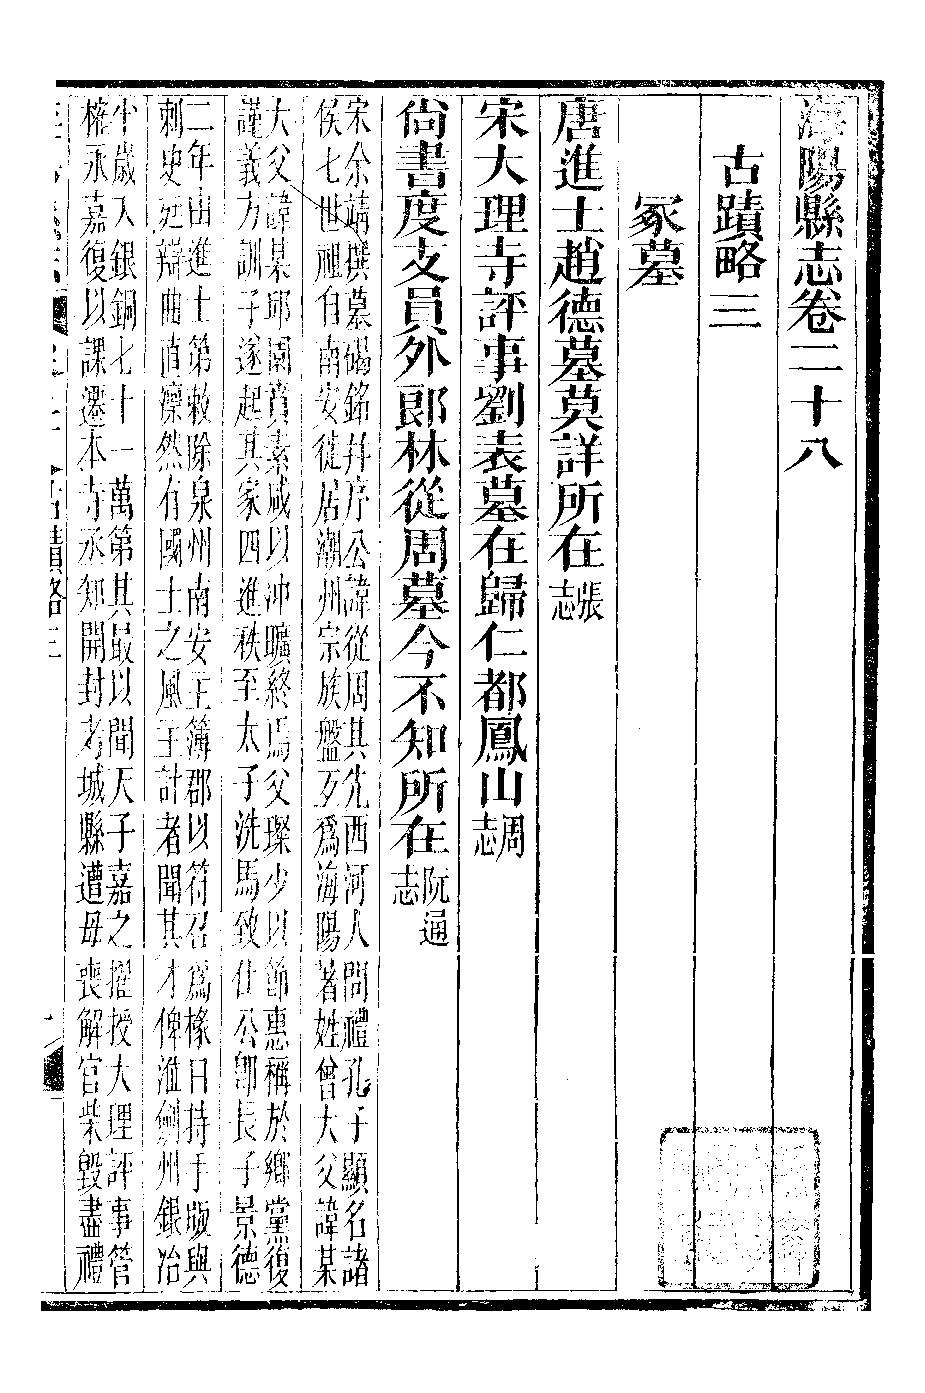 海陽縣志卷二十八
古蹟略三
冢墓
唐進士趙德墓莫詳所在張志
宋大理寺評事劉表墓在歸仁都鳳山周志
尙書度支員外郞林從周墓今不知所在阮通志
宋余靖撰墓碣銘幷序公諱從周其先西河人問禮孔子顯名諸
侯七世祖自南安徙居潮州宗族盤互爲海陽著姓曾大父諱某
大父諱某邱園賁素咸以沖曠終焉父璨少以節惠稱於鄉黨復
謹義方訓子遂起其家四進秩至太子洗馬致仕公郞長子景德
二年由進士第敕除泉州南安主簿郡以符召爲掾日持手版與
刺史廷辯曲直懍然有國士之風主計者聞其才俾淮劍州銀冶
少歲入銀銅七十一萬第其最以聞天子嘉之擢授大理評事管
榷永嘉復以課遷本寺丞知開封考城縣遭母喪解官柴毀盡禮
蹟略三